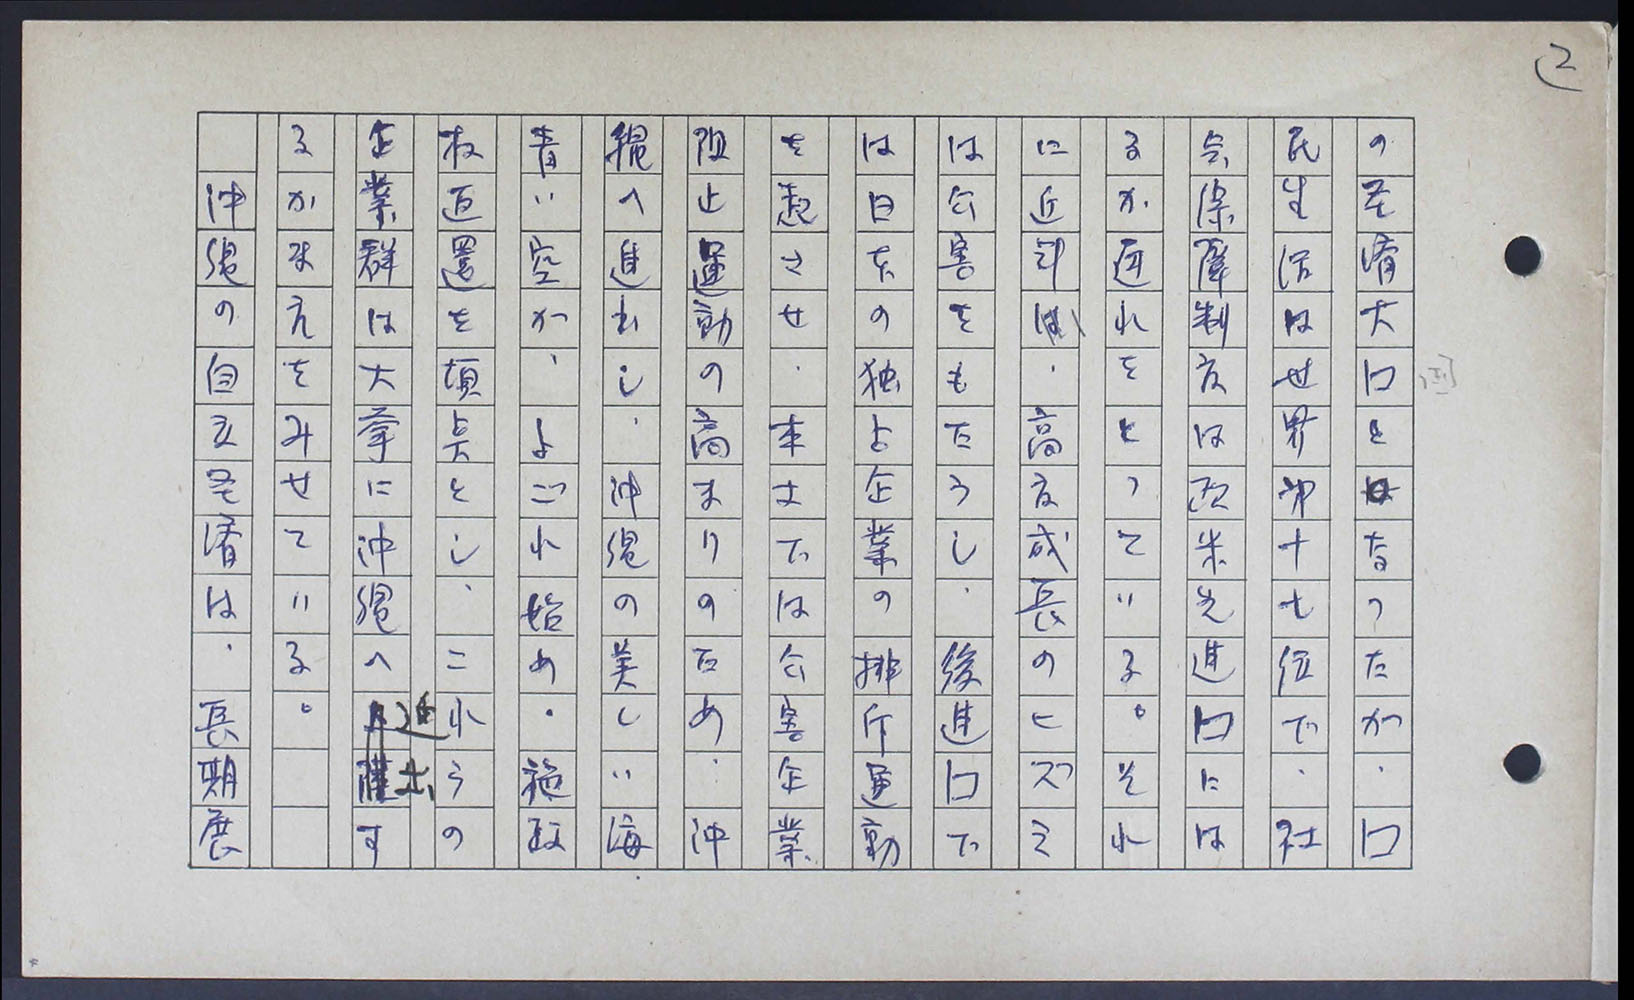 2
の圣済大口とはなつたが、口
民生活は世界㐧十七位で、社
会保障制度は欧米先進口には
るか遅れをとつている。それ
に近年は、高度成長のヒズミ
は公害をもたらし、後進口で
は日本の独占企業の排斥運動
を起させ、本土では公害企業
阻止運動の高まりのため、沖
縄へ進出し、沖縄の美しい海
青い空が、よごれ始め、施政
权返還を頂点とし、これらの
企業群は大挙に沖縄へ進出す
るかまえをみせている。
沖縄の自立圣済は、長期展